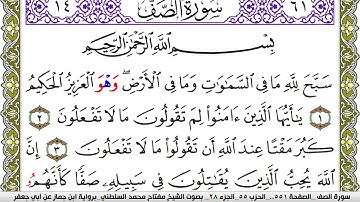 ١٤ سُورَةُ الصَّفِّ ٦١
بِسْمِ اللَّهِ الرَّحْمَٰنِ الرَّحِيمِ
سَبَّحَ لِلَّهِ مَا فِي السَّمَٰوَٰتِ وَمَا فِي الْأَرْضِ ۖ وَهْوَ الْعَزِيزُ الْحَكِيمُ
١ يَٰٓأَيُّهَا الَّذِينَ ءَامَنُوا لِمَ تَقُولُونَ مَا لَا تَفْعَلُونَ ٢
كَبُرَ مَقْتًا عِندَ اللَّهِ أَن تَقُولُوا مَا لَا تَفْعَلُونَ ٣ إِنَّ
اللَّهَ يُحِبُّ الَّذِينَ يُقَٰتِلُونَ فِي سَبِيلِهِ صَفًّا كَأَنَّهُمُ
سورة الصف الصفحة ٥٥١ الحزب ٥٥ الجزء ٢٨ بصوت الشيخ مفتاح محمد السلطني برواية ابن جماز عن أبي جعفر